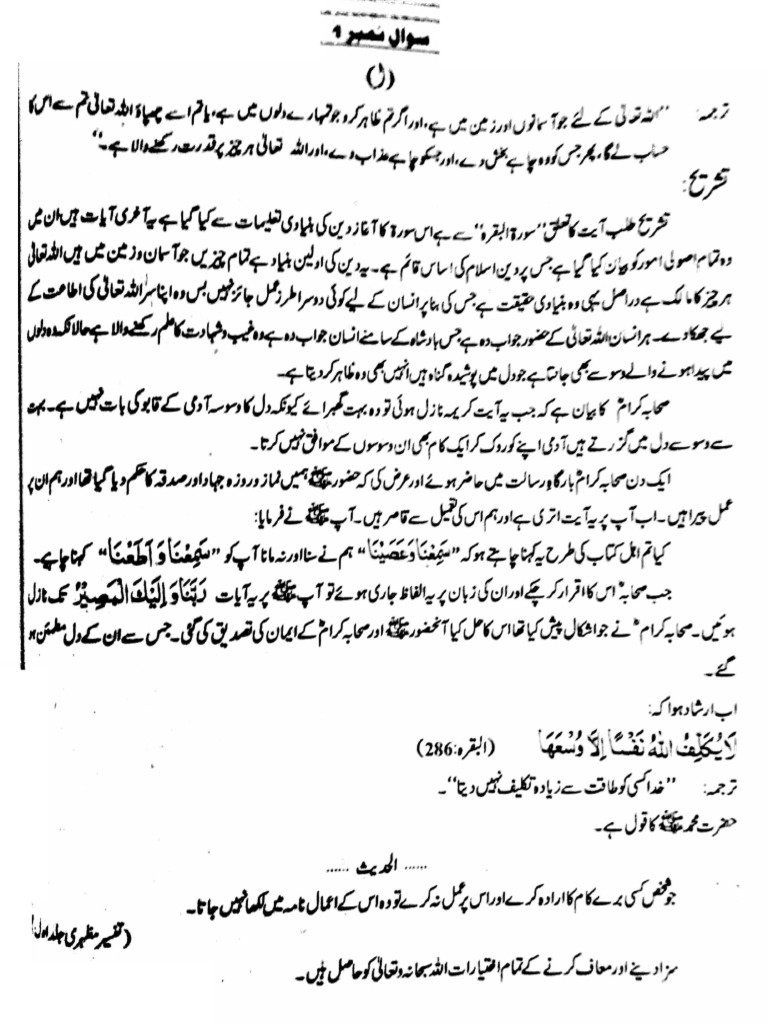 سوال نمبر 1
(ا)
ترجمہ: "اللہ تعالیٰ کے لئے جو آسمانوں اور زمین میں ہے، اور اگر تم ظاہر کرو جو تمہارے دلوں میں ہے، یا تم اسے چھپاؤ اللہ تعالیٰ تم سے اس کا
حساب لے گا، پھر جس کو وہ چاہے بخش دے، اور جسکو چاہے عذاب دے، اور اللہ تعالیٰ ہر چیز پر قدرت رکھنے والا ہے۔"
تشریح:
تشریح طلب آیت کا تعلق "سورۃ البقرہ" سے ہے اس سورۃ کا آغاز دین کی بنیادی تعلیمات سے کیا گیا ہے یہ آخری آیات ہیں ان میں
وہ تمام اصولی امور کو بیان کیا گیا ہے جس پر دین اسلام کی اساس قائم ہے۔ یہ دین کی اولین بنیاد ہے تمام چیزیں جو آسمان و زمین میں ہیں اللہ تعالیٰ
ہر چیز کا مالک ہے دراصل یہی وہ بنیادی حقیقت ہے جس کی بنا پر انسان کے لیے کوئی دوسرا طرز عمل جائز نہیں بس وہ اپنا سر اللہ تعالیٰ کی اطاعت کے
لیے جھکا دے۔ ہر انسان اللہ تعالیٰ کے حضور جواب دہ ہے جس بادشاہ کے سامنے انسان جواب دہ ہے وہ غیب و شہادت کا علم رکھنے والا ہے حالانکہ وہ دلوں
میں پیدا ہونے والے وسوسے بھی جانتا ہے جو دل میں پوشیدہ گناہ ہیں انہیں بھی وہ ظاہر کر دیتا ہے۔
صحابہ کرامؓ کا بیان ہے کہ جب یہ آیت کریمہ نازل ہوئی تو وہ بہت گھبرائے کیونکہ دل کا وسوسہ آدمی کے قابو کی بات نہیں ہے۔ بہت
سے وسوسے دل میں گزرتے ہیں آدمی اپنے کو روک کر ایک کام بھی ان وسوسوں کے موافق نہیں کرتا۔
ایک دن صحابہ کرامؓ بارگاہ رسالت میں حاضر ہوئے اور عرض کی کہ حضور ﷺ ہمیں نماز و روزہ جہاد اور صدقہ کا حکم دیا گیا تھا اور ہم ان پر
عمل پیرا ہیں۔ اب آپ پر یہ آیت اتری ہے اور ہم اس کی تعمیل سے قاصر ہیں۔ آپ ﷺ نے فرمایا:
کیا تم اہل کتاب کی طرح یہ کہنا چاہتے ہو کہ "سَمِعْنَا وَعَصَيْنَا" ہم نے سنا اور نہ مانا آپ کو "سَمِعْنَا وَاَطَعْنَا" کہنا چاہیے۔
جب صحابہؓ اس کا اقرار کر چکے اور ان کی زبان پر یہ الفاظ جاری ہوئے تو آپ ﷺ پر یہ آیات رَبَّنَا وَاِلَيْكَ الْمَصِيْرُ تک نازل
ہوئیں۔ صحابہ کرامؓ نے جو اشکال پیش کیا تھا اس کا حل کیا آنحضور ﷺ اور صحابہ کرامؓ کے ایمان کی تصدیق کی گئی۔ جس سے ان کے دل مطمئن ہو
گئے۔
اب ارشاد ہوا کہ:
لَا يُكَلِّفُ اللهُ نَفْسًا اِلَّا وُسْعَهَا (البقرہ:286)
ترجمہ: "خدا کسی کو طاقت سے زیادہ تکلیف نہیں دیتا"۔
حضرت محمد ﷺ کا قول ہے۔
...... الحدیث ......
جو شخص کسی برے کام کا ارادہ کرے اور اس پر عمل نہ کرے تو وہ اس کے اعمال نامہ میں لکھا نہیں جاتا۔
(تفسیر مظہری جلد اول)
سزا دینے اور معاف کرنے کے تمام اختیارات اللہ سبحانہ وتعالیٰ کو حاصل ہیں۔